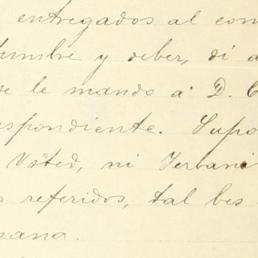 entregados al com
tumbre y deber, di a
se le mando á D. C
espondiente. Supo
Usted, ni Terbani
s referidos, tal bes
sana.